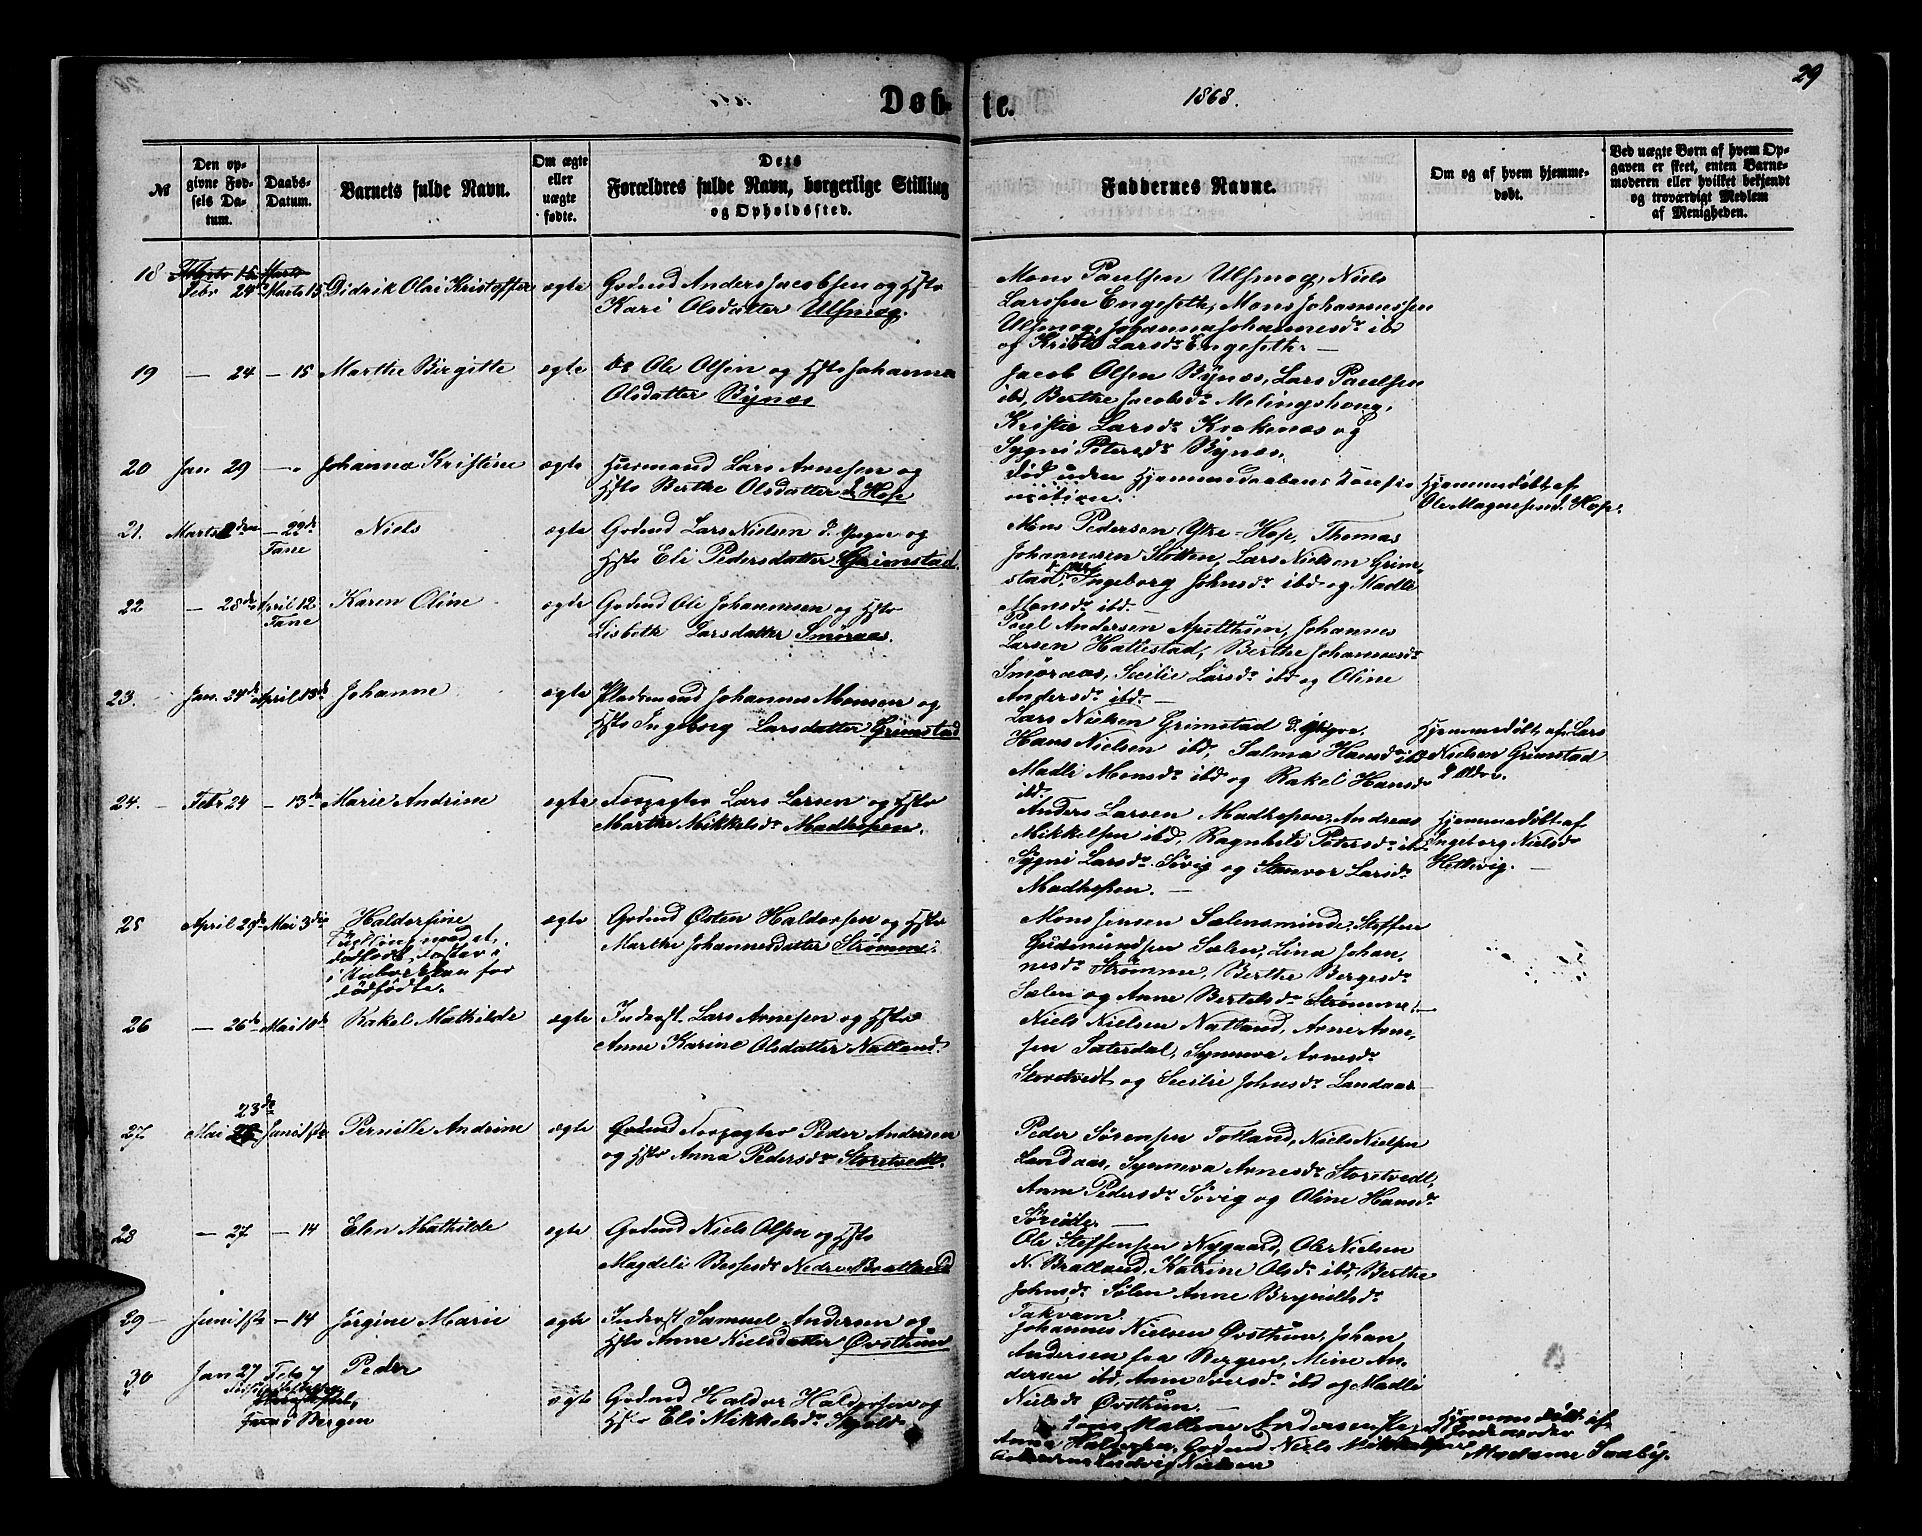 29
Døb- te.
1868.
№
Den op-
givne Fød-
sels Da-
tum.
Daabs-
Datum.
Barnets fulde Navn.
Om ægte
eller
uægte
fødte.
Dets
Forældres fulde Navn, borgerlige Stilling
og Opholdssted.
Faddernes Navne.
Om og af hvem hjemme-
døbt.
Ved uægte Børn af hvem Op-
gaven er skeet, enten Barne-
moderen eller hvilket bekjendt
og troværdigt Medlem
af Menigheden.
18 Febr 24de Marts 15 Didrik Olai Kristoffer ægte Gdmd Anders Jacobsen og Hstr
Kari Olsdatter Ulsmog.
Mons Paulsen Ulsmog, Niels
Larssen Engeseth, Mons Johannessen
Ulsmog, Johanna Johannesdr ibd
og Larsdr Engeseth. —
19 — 24 — 15 Marthe Birgitte ægte do Ole Olsen og Hstr Johanna
Olsdatter Bynæs
Jacob Olsen Bynæs, Lars Paulsen
ibd, Berthe Jacobsdr Melingshoug,
Larsdr Krokenæs og
Sygni Petersdr Bynæs.
20 Jan 29 — Johanna Kristine ægte Huusmand Lars Arnesen og
Hstr Berthe Olsdatter d. Hop
Død uden Hjemmedaabens Confir-
mation.
Hjemmedøbt af
Ole Magnesen d. Hop.
21. Marts 2den — 22de
Fane
Niels ægte Gdmd Lars Nielsen d. Yngre og
Hstr Eli Pedersdatter Grimstad.
Mons Pedersen Ytre-Hop, Thomas
Johannesen Stotten, Lars Nielsen Grim-
stad, Ingeborg Johnsdr ibd og Madli
Monsdr ibd. —
22 — 28de April 12
Fane
Karen Oline ægte Gdmd Ole Johannesen og Hstr
Lisbeth Larsdatter Smøraas.
Poul Andersen Apelthun, Johannes
Larsen Hattestad, Berthe Johannesdr
Smøraas, Secilie Larsdr ibd og Oline
Andersdr ibd. —
23. Jan. 24de April 13de Johanne ægte Pladsmand Johannes Monsen og
Hstr Ingeborg Larsdatter Grimstad
Lars Nielsen Grimstad d. Yngre,
Hans Nielsen ibd, Salma Hansdr ibd
Madli Monsdr ibd og Rakel Hansdr
ibd.
Hjemmedøbt af Lars
Nielsen Grimstad
d. Ældre.
24. — Febr 24 — 13de Marie Andrine ægte Forpagter Lars Larsen og Hstr
Marthe Mikkelsdr Madhopen.
Anders Larsen Madhopen, Andreas
Mikkelsen ibd, Ragnhild Petersdr ibd
Sygni Larsdr Søvig og Stenvor Larsdr
Madhopen. —
Hjemmedøbt af
Ingeborg Nielsdr
Hellevig. —
25 April 29de Mai 3die Haldorsine
Tvilling med et
dødfødt,
i Rubrikken for
dødfødte.
ægte Gdmd Østen Haldorsen og Hstr
Marthe Johannesdatter Strømme.
Mons Jensen Sælensminde, Steffen
Gudmundsen Sælen, Lina Johan-
nesdr Strømme, Berthe Bergesdr
Sælen og Anne Bertelsdr Strømme. —
26 — 26de Mai 10de Rakel Mathilde ægte Inderst Lars Arnesen og Hstr
Anne Karine Olsdatter Natland.
Niels Nielsen Natland, Arne Arne-
sen Sæterdal, Synneva Arnesdr
Storetvedt og Secilie Johnsdr Landaas
27 Mai 23de Juni 1ste Pernille Andrine ægte Forpagter Peder Andersen
og Hstr Anna Pedersdr Storetvedt.
Peder Sørensen Totland, Niels Nielsen
Landaas, Synneva Arnesdr Storetvedt,
Anne Pedersdr Søvig og Oline Hansdr
28 — 27 — 14 Elen Mathilde ægte Gdmd Niels Olsen og Hstr
Magdeli Bessesdr Nedre Bratland
Ole Steffensen Nygaard, Ole Nielsen
N. Bratland, Katrine Olsdr ibd, Berthe
Johnsdr Sølen Anne Brynildsdr
Takvam.
29 — Juni 1ste — 14 Jørgine Marie ægte Inderst Samuel Andersen og
Hstr Anne Nielsdatter Øvsthun
Johannes Nielsen Øvsthun, Johan
Andersen fra Bergen, Mine An-
dersen ibd, Anne Iversdr ibd og Madli
Nielsdr Øvsthun. —
30 Jan 27 Febr 7 Peder
Bergen
ægte Gdmd Haldor Haldorsen og
Hstr Eli Mikkelsdr Skjold
Mallene Andersen
Anna Haldorsen, Gdmd Niels Mikkelsen
Ludvig Nielsen
Hjemmedøbt af
Jordemoder
Madame Saaby.